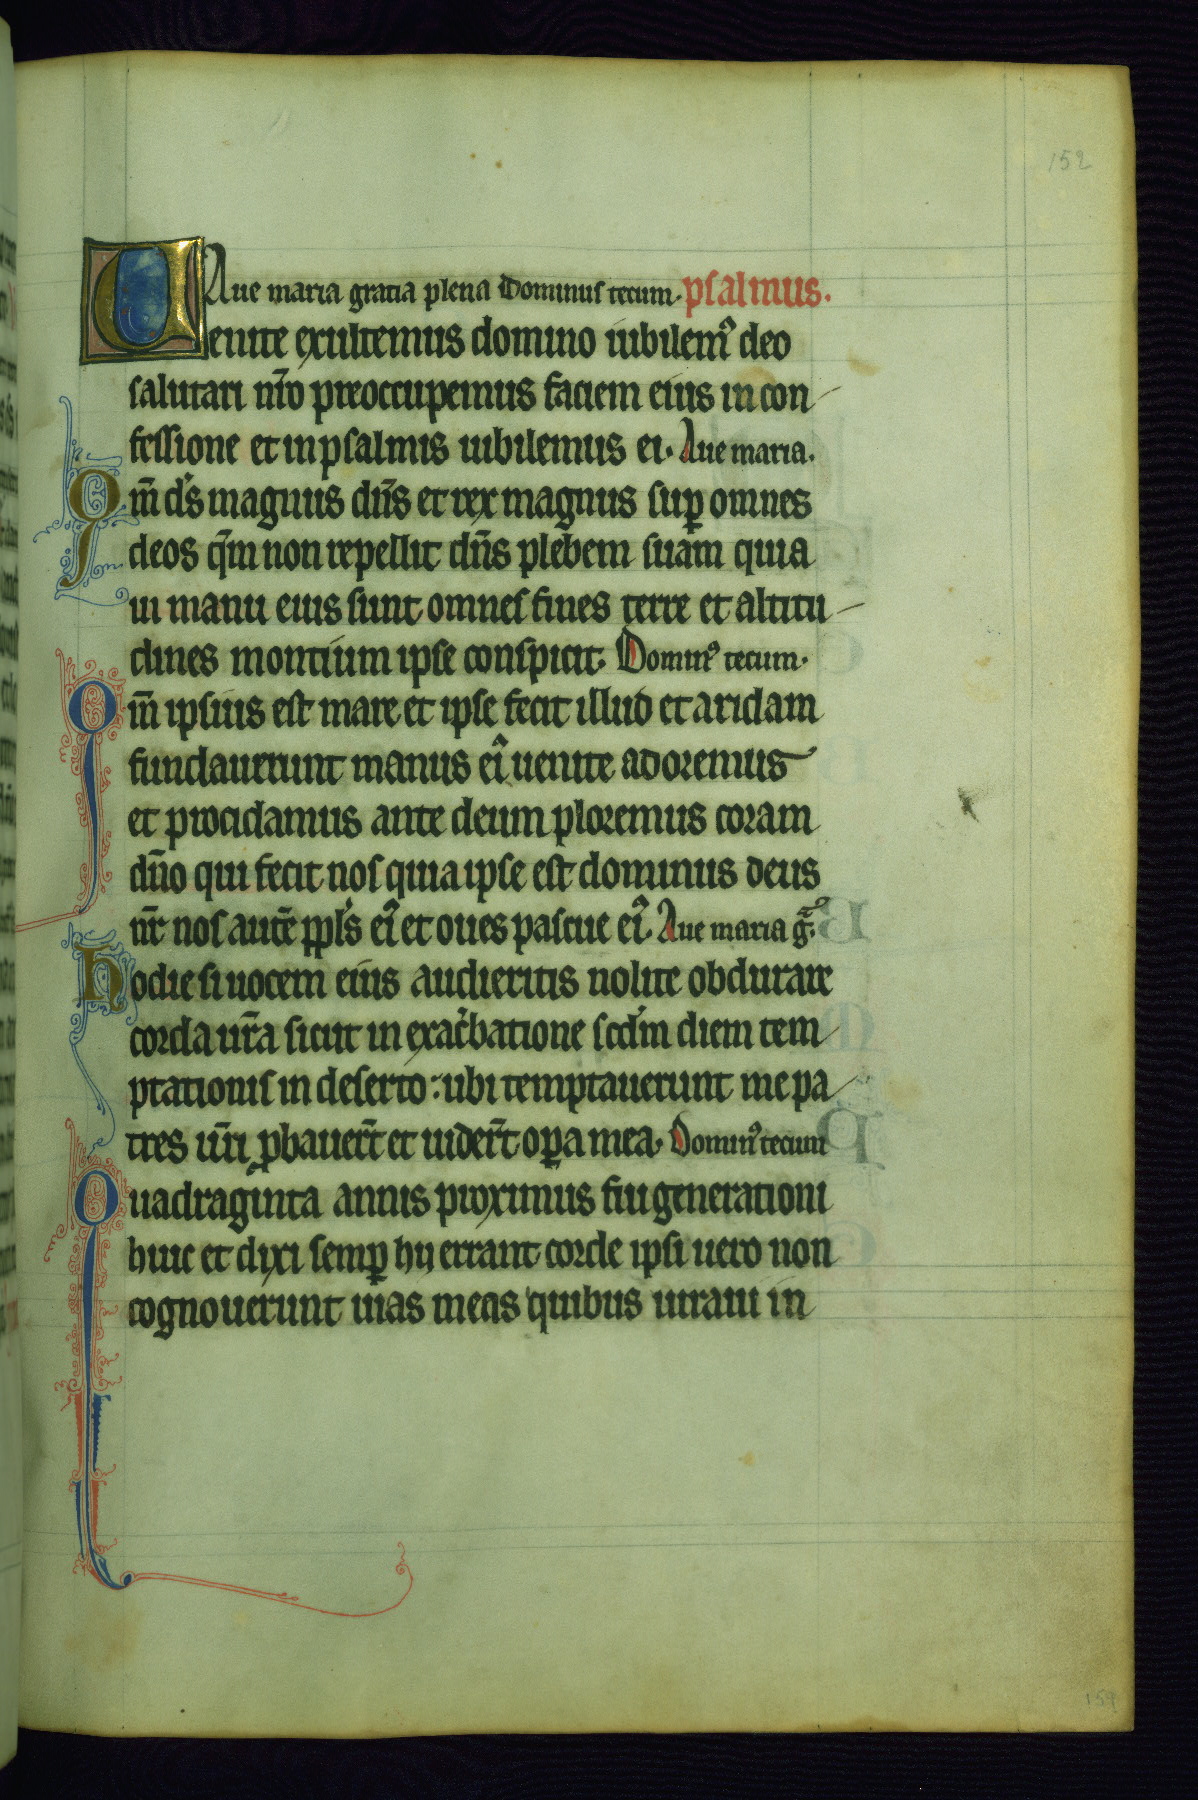 152
Aue maria gratia plena Dominus tecum. psalmus.
Uenite exultemus domino iubilemꝰ deo
salutari nr̄o preoccupemus faciem eius in con
fessione et in psalmis iubilemus ei. Aue maria.
Qm̄ ds̄ magnus dn̄s et rex magnus suꝑ omnes
deos qm̄ non repellit dn̄s plebem suam quia
in manu eius sunt omnes fines terre et altitu
dines montium ipse conspicit. Dominꝰ tecum.
Qm̄ ipsius est mare et ipse fecit illud et aridam
fundauerunt manus eiꝰ uenite adoremus
et procidamus ante deum ploremus coram
dn̄o qui fecit nos quia ipse est dominus deus
nr̄ nos autē ppls̄ eiꝰ et oues pascue eiꝰ. Aue maria g̃.
Hodie si uocem eius audieritis nolite obdurare
corda ur̄a sicut in exac̄batione scdm̄ diem tem
ptationis in deserto: ubi temptauerunt me pa
tres ur̄i ꝓbauer̄t et uider̄t oꝑa mea. Dominꝰ tecum
Quadraginta annis proximus fui generationi
huic et dixi semꝑ hij errant corde ipsi uero non
cognouerunt uias meas quibus iuraui in
159